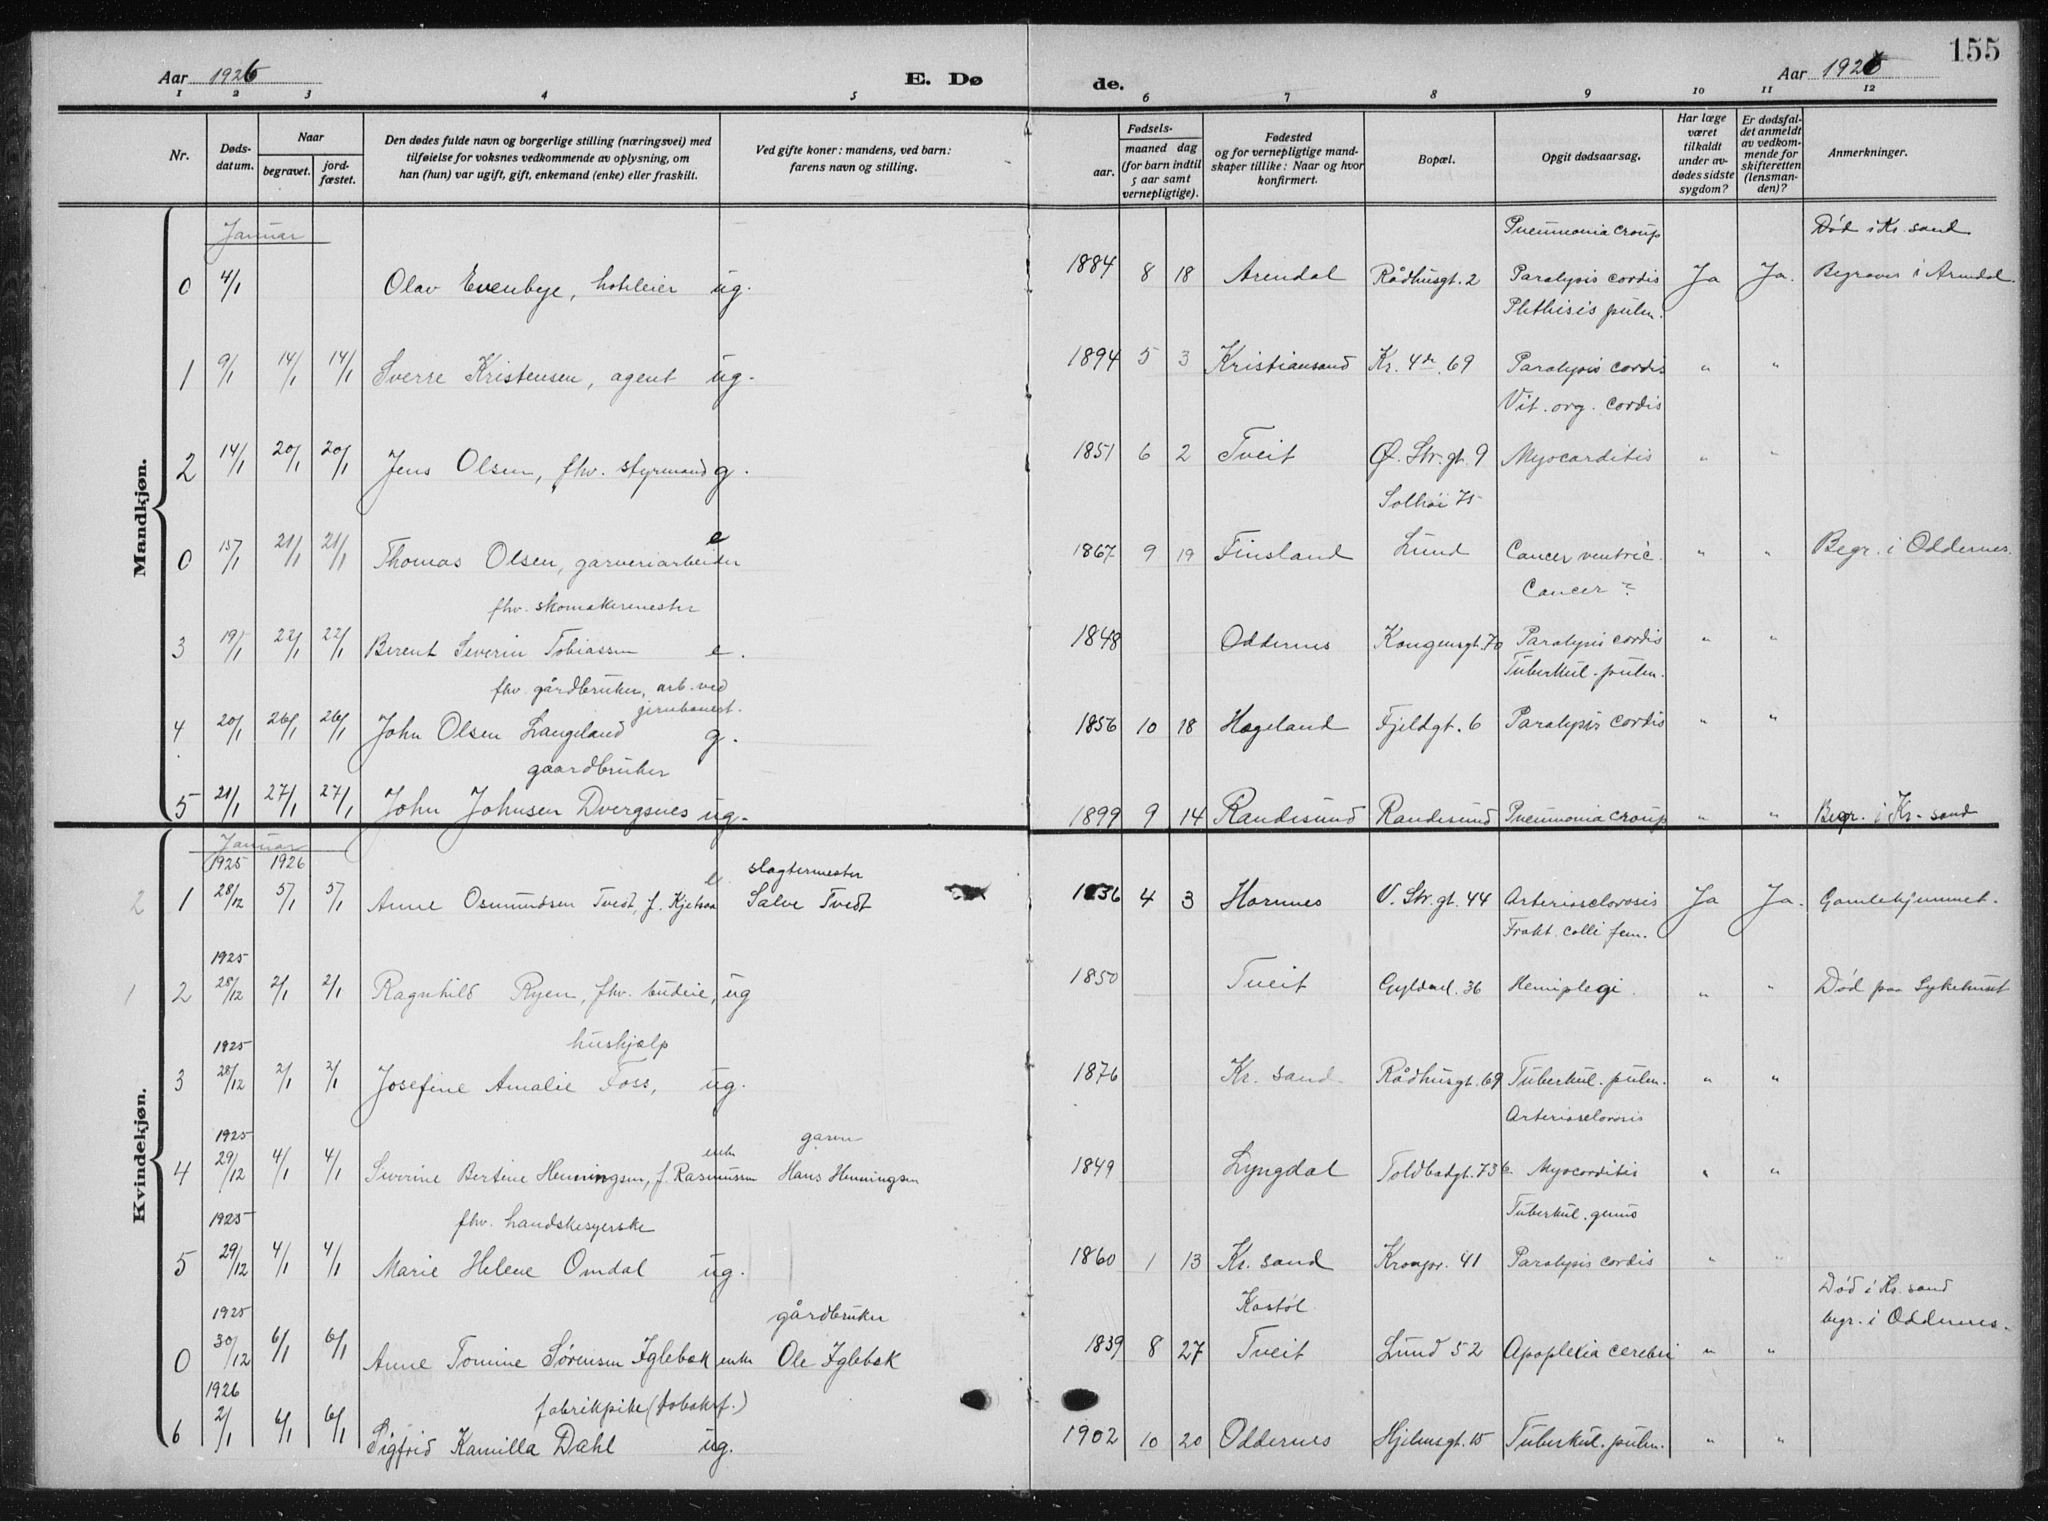 155
Aar 1926 E. Døde. Aar 1926
1 2 3 4 5 6 7 8 9 10 11 12
Nr.
Døds-
datum.
Naar
begravet.
jord-
fæstet.
Den dødes fulde navn og borgerlige stilling (næringsvei) med
tilføielse for voksnes vedkommende av oplysning, om
han (hun) var ugift, gift, enkemand (enke) eller fraskilt.
Ved gifte koner: mandens, ved barn:
farens navn og stilling.
Fødsels-
aar.
maaned dag
(for barn indtil
5 aar samt
vernepligtige).
Fødested
og for vernepligtige mand-
skaper tillike: Naar og hvor
konfirmert.
Bopæl.
Opgit dødsaarsag.
Har læge
været
tilkaldt
under av-
dødes sidste
sygdom?
Er dødsfal-
det anmeldt
av vedkom-
mende for
skifteretten
(lensman-
den)?
Anmerkninger.
Mandkjøn.
Januar Pneumonia croup Død i Kr. sand
0 4/1 Olav Evenbye, hotileier ug. 1884 8 18 Arendal Rådhusgt. 2 Paralysis cordis Ja Ja. Begraves i Arendal.
Phthisis pulm.
1 9/1 14/1 14/1 Sverre Kristensen, agent ug. 1894 5 3 Kristiansand Kr. 4de 69 Paralysis cordis " "
Vit. org. cordis
2 14/1 20/1 20/1 Jens Olsen, fhv. styrmand g. 1851 6 2 Tveit Ø. Str. gt. 9 Myocarditis " "
Solhøi 75
0 15/1 21/1 21/1 Thomas Olsen, garveriarbeider e 1867 9 19 Finsland Lund Cancer ventric. " " Begr. i Oddernes.
fhv. skomakermester Cancer
3 19/1 22/1 22/1 Berent Severin Tobiassen e. 1848 Oddernes Kongensgt. 70 Paralysis cordis " "
fhv. gårdbruker, arb. ved Tuberkul. pulm.
jernbanest.
4 20/1 26/1 26/1 John Olsen Langeland g. 1856 10 18 Hægeland Fjeldgt. 6 Paralysis cordis " "
gaardbruker
5 21/1 27/1 27/1 John Johnsen Dvergsnes ug. 1899 9 14 Randesund Randesund Pneumonia croup " " Begr. i Kr. sand
Kvindekjøn.
Januar
1925 1926 slagtermester
2 1 28/12 5/1 5/1 Anne Osmundsen Tvedt, f. Kjelsaa e. Salve Tvedt 1836 4 3 Hornnes V. Str. gt. 44 Arteriosclerosis Ja Ja. Gamlehjemmet.
Frakt. colli fem.
1925
1 2 28/12 2/1 2/1 Ragnhild Ryen, fhv. budeie, ug 1850 Tveit Gyldenl. 36 Hemiplegi. " " Død paa Sykehuset
1925 hushjælp
3 28/12 2/1 2/1 Josefine Amalie Foss, ug. 1876 Kr. sand Rådhusgt. 69 Tuberkul. pulm. " "
Arteriosclerosis
1925 enke garver
4 29/12 4/1 4/1 Severine Bertine Henningsen, f. Rasmussen Hans Henningsen 1849 Lyngdal Toldbodgt. 73 b. Myocarditis " "
1925 fhv. handskesyerske Tuberkul. genus
5 29/12 4/1 4/1 Marie Helene Omdal ug. 1860 1 13 Kr. sand Kronpr. 41 Paralysis cordis " "
1925 gårdbruker Kostøl Død i Kr. sand
begr. i Oddernes.
0 30/12 6/1 6/1 Anne Tomine Sørensen Iglebæk enke Ole Iglebæk 1839 8 27 Tveit Lund 52 Apoplexia cerebri " "
1926 fabrikpike (tobaksf.)
6 2/1 6/1 6/1 Sigfrid Kamilla Dahl ug. 1902 10 20 Oddernes Hjelmsgt. 15 Tuberkul. pulm. " "